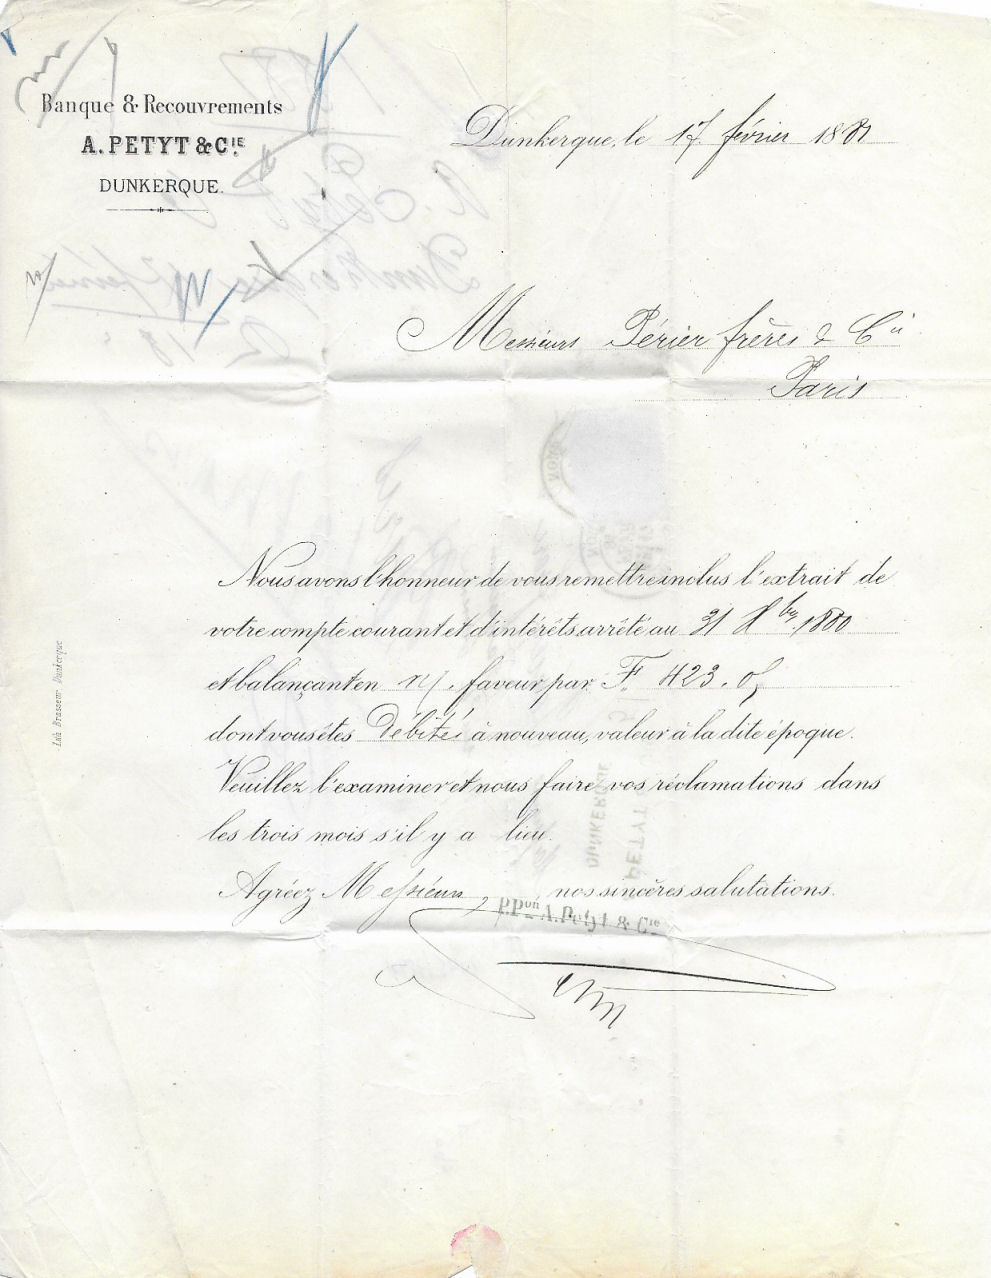 Banque & Recouvrements
A. PETYT & CIE.
DUNKERQUE.
Dunkerque, le 17 février 1881
Messieurs Périer frères & Cie
Paris
Nous avons l'honneur de vous remettre inclus l'extrait de
votre compte courant et d'intérêts arrêté au 31 Xbre 1880
et balançant en n/. faveur par F. 423.
dont vous êtes Débités à nouveau, valeur à la dite époque.
Veuillez l'examiner et nous faire vos réclamations dans
les trois mois s'il y a lieu.
Agréez Messieurs, nos sincères salutations.
P.Pon A. Petyt & Cie
Lith Brasseur Dunkerque
DUNKERQUE
PETYT